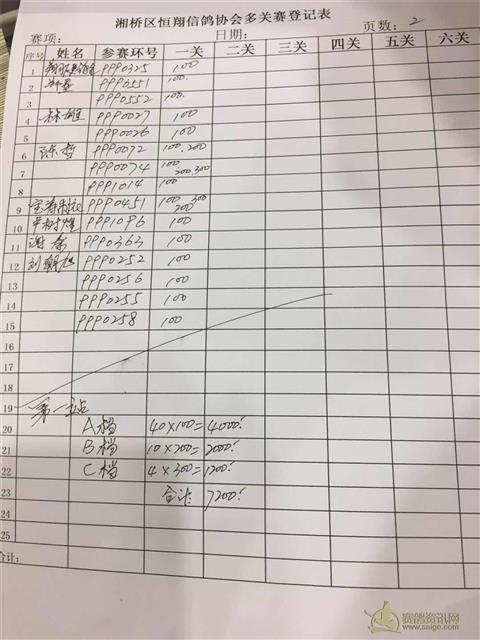 湘桥区恒翔信鸽协会多关赛登记表
赛项： 日期： 页数：2
序号 姓名 参赛环号 一关 二关 三关 四关 五关 六关
1 PPP0325 100
2 PPP0551 100.
3 PPP0552 100.
4 林雄 PPP0027 100
5 PPP0026 100
6 陈哲 PPP0072 100.200
7 PPP0074 100. 200.300
8 PPP1014 100
9 PPP0451 100 200 300
10 PPP1096 100
11 PPP0363 100
12 PPP0252 100
13 PPP0256 100
14 PPP0255 100
15 PPP0258 100
16
17
18
19 第一站
20 A档 40×100=4000.
21 B档 10×200=2000.
22 C档 4×300=1200.
23 合计 7200.
24
25
合计：
赛鸽资讯网
www.saige.com